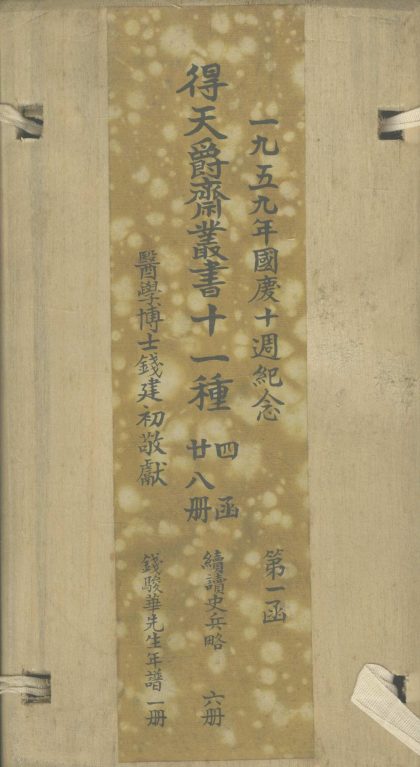 一九五九年國慶十週紀念
第一函
得天爵齋叢書十一種
四函
廿八册
續讀史兵略 六册
醫學博士錢建初敬獻
錢駿華先生年譜一册